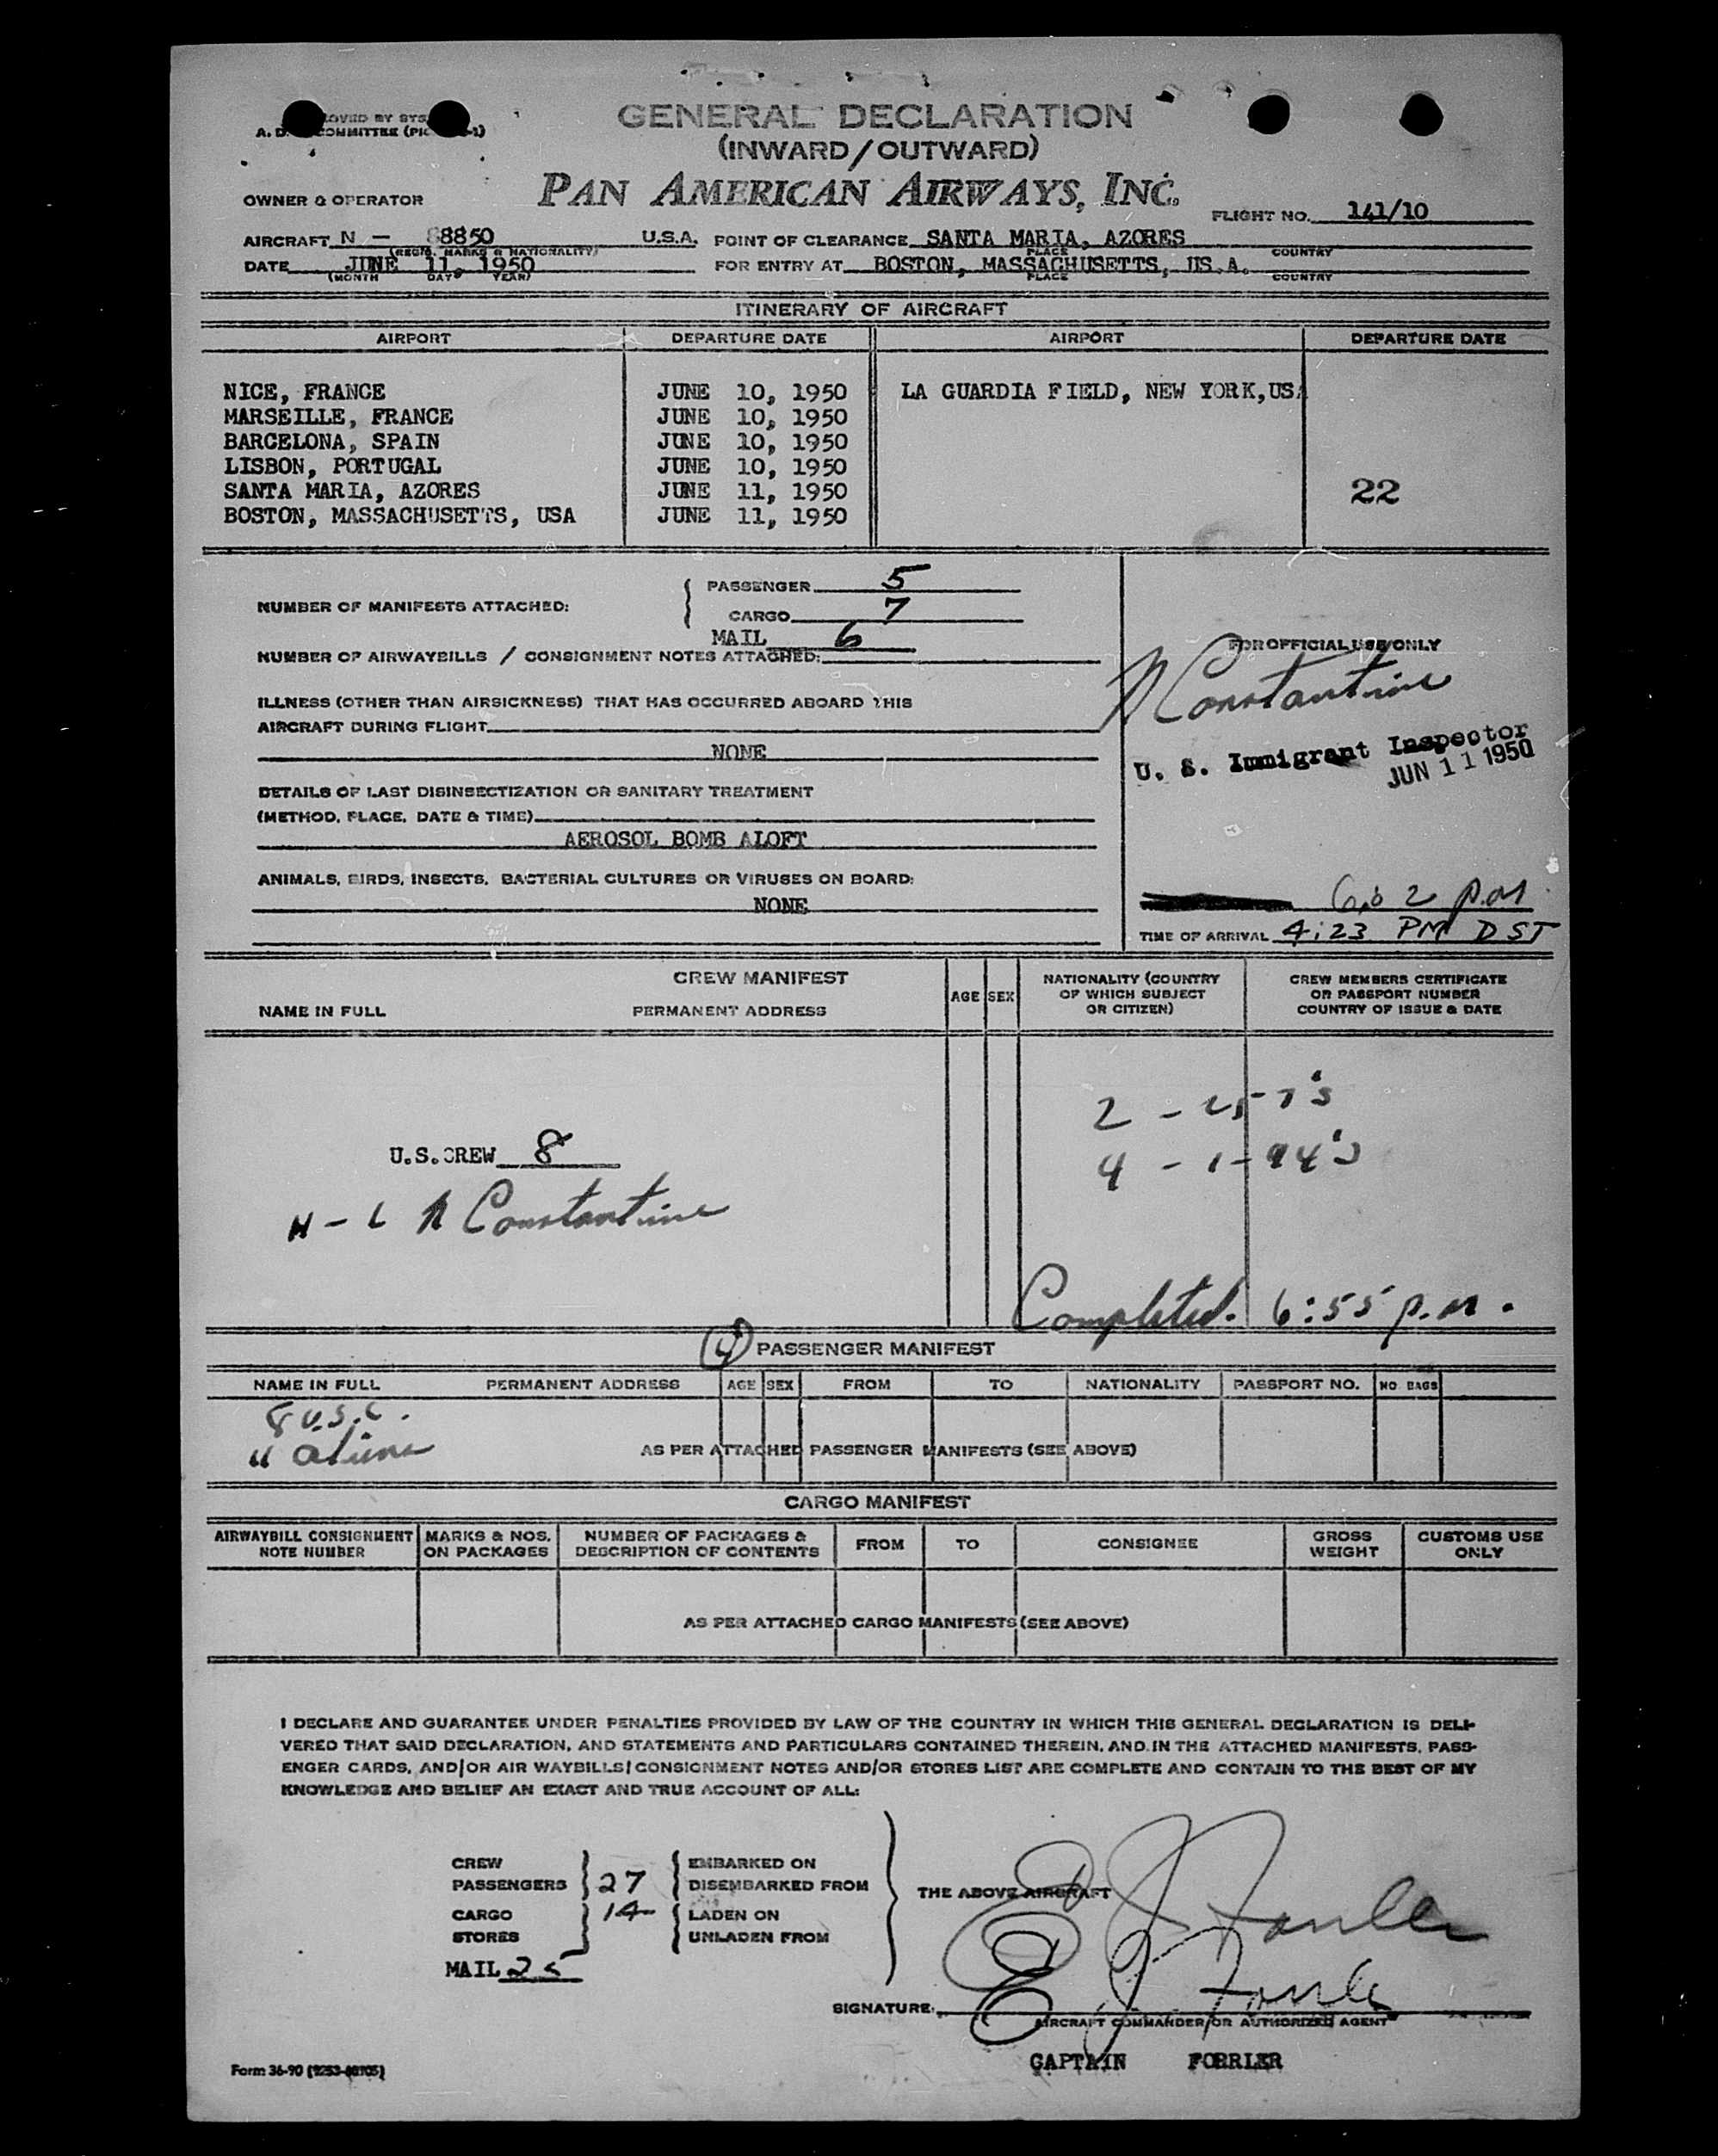 GENERAL DECLARATION
(INWARD/OUTWARD)
PAN AMERICAN AIRWAYS, INC.
OWNER & OPERATOR
FLIGHT NO. 141/10
AIRCRAFT N — 88850 U.S.A. POINT OF CLEARANCE SANTA MARIA, AZORES
(REGIS. MARKS & NATIONALITY) PLACE COUNTRY
DATE JUNE 11, 1950 FOR ENTRY AT BOSTON, MASSACHUSETTS, US.A.
(MONTH DAY YEAR) PLACE COUNTRY
ITINERARY OF AIRCRAFT
AIRPORT DEPARTURE DATE AIRPORT DEPARTURE DATE
NICE, FRANCE JUNE 10, 1950 LA GUARDIA FIELD, NEW YORK,USA
MARSEILLE, FRANCE JUNE 10, 1950
BARCELONA, SPAIN JUNE 10, 1950
LISBON, PORTUGAL JUNE 10, 1950
SANTA MARIA, AZORES JUNE 11, 1950 22
BOSTON, MASSACHUSETTS, USA JUNE 11, 1950
NUMBER OF MANIFESTS ATTACHED: PASSENGER 5
CARGO 7
MAIL 6
NUMBER OF AIRWAYBILLS / CONSIGNMENT NOTES ATTACHED:
FOR OFFICIAL USE ONLY
N Constantine
U. S. Immigrant Inspector
JUN 11 1950
ILLNESS (OTHER THAN AIRSICKNESS) THAT HAS OCCURRED ABOARD THIS
AIRCRAFT DURING FLIGHT
NONE
DETAILS OF LAST DISINSECTIZATION OR SANITARY TREATMENT
(METHOD, PLACE, DATE & TIME)
AEROSOL BOMB ALOFT
ANIMALS, BIRDS, INSECTS, BACTERIAL CULTURES OR VIRUSES ON BOARD:
NONE
p.m
TIME OF ARRIVAL 4:23 PM DST
CREW MANIFEST
NAME IN FULL PERMANENT ADDRESS AGE SEX NATIONALITY (COUNTRY OF WHICH SUBJECT OR CITIZEN) CREW MEMBERS CERTIFICATE OR PASSPORT NUMBER COUNTRY OF ISSUE & DATE
U.S.CREW 8
N Constantine
Completed. 6:55 p.m.
PASSENGER MANIFEST
NAME IN FULL PERMANENT ADDRESS AGE SEX FROM TO NATIONALITY PASSPORT NO. NO. BAGS
8 U.S.C.
AS PER ATTACHED PASSENGER MANIFESTS (SEE ABOVE)
CARGO MANIFEST
AIRWAYBILL CONSIGNMENT NOTE NUMBER MARKS & NOS. ON PACKAGES NUMBER OF PACKAGES & DESCRIPTION OF CONTENTS FROM TO CONSIGNEE GROSS WEIGHT CUSTOMS USE ONLY
AS PER ATTACHED CARGO MANIFESTS (SEE ABOVE)
I DECLARE AND GUARANTEE UNDER PENALTIES PROVIDED BY LAW OF THE COUNTRY IN WHICH THIS GENERAL DECLARATION IS DELI-
VERED THAT SAID DECLARATION, AND STATEMENTS AND PARTICULARS CONTAINED THEREIN, AND IN THE ATTACHED MANIFESTS, PASS-
ENGER CARDS, AND/OR AIR WAYBILLS/CONSIGNMENT NOTES AND/OR STORES LIST ARE COMPLETE AND CONTAIN TO THE BEST OF MY
KNOWLEDGE AND BELIEF AN EXACT AND TRUE ACCOUNT OF ALL:
CREW EMBARKED ON
PASSENGERS 27 DISEMBARKED FROM
THE ABOVE AIRCRAFT
CARGO 14 LADEN ON
STORES UNLADEN FROM
MAIL 25
SIGNATURE:
AIRCRAFT COMMANDER/OR AUTHORIZED AGENT
CAPTAIN FORRLER
Form 36-90